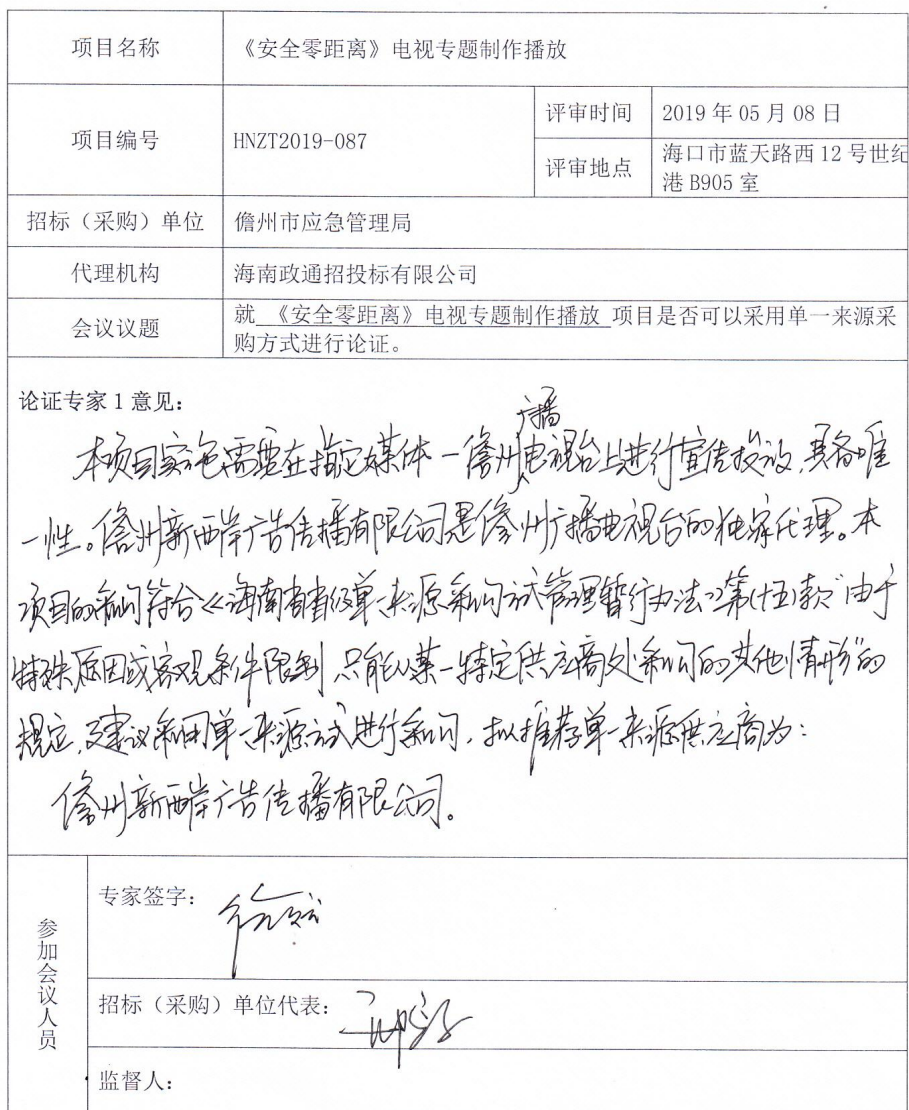 项目名称 《安全零距离》电视专题制作播放
项目编号 HNZT2019-087 评审时间 2019年05月08日
评审地点 海口市蓝天路西12号世纪
港B905室
招标（采购）单位 儋州市应急管理局
代理机构 海南政通招投标有限公司
会议议题 就 《安全零距离》电视专题制作播放 项目是否可以采用单一来源采
购方式进行论证。
论证专家1意见：
本项目实施需要在指定媒体一儋州广播电视台上进行宣传投放，具备唯
一性。儋州新西岸广告传播有限公司是儋州广播电视台的独家代理。本
项目的采购符合《海南省省级单一来源采购方式管理暂行办法》第(十五)款“由于
特殊原因或客观条件限制，只能从某一特定供应商处采购的其他情形”的
规定，建议采用单一来源方式进行采购，拟推荐单一来源供应商为：
儋州新西岸广告传播有限公司。
参加会议人员
专家签字：
招标（采购）单位代表：
监督人：